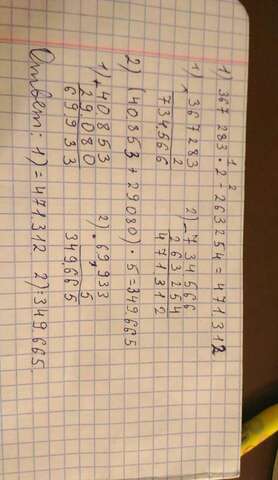 1) 367 283 · 2 - 263254 = 471312
1 2
1) × 367283 2) - 734566
2 263254
734566 471312
2) (40853 + 29080) · 5 = 349665
1) + 40853 2) · 69933
29080 5
69933 349665
Ответ: 1) = 471312 2) = 349665.